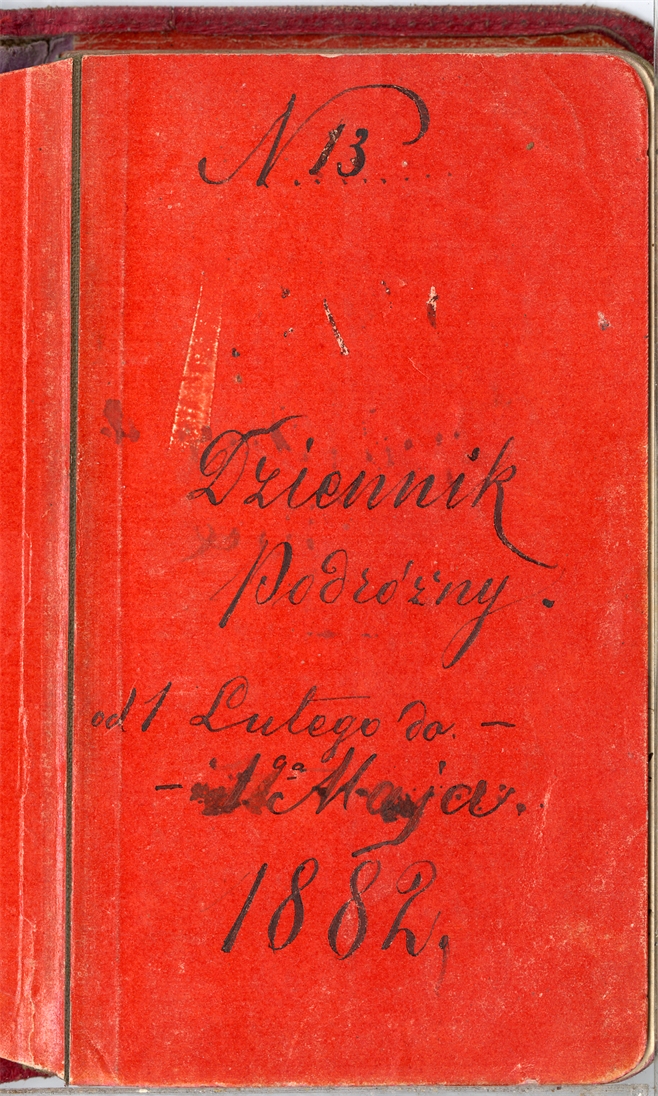 N. 13
Dziennik
Podróżny.
od 1 Lutego do. –
– 1ga Maja.
1882.